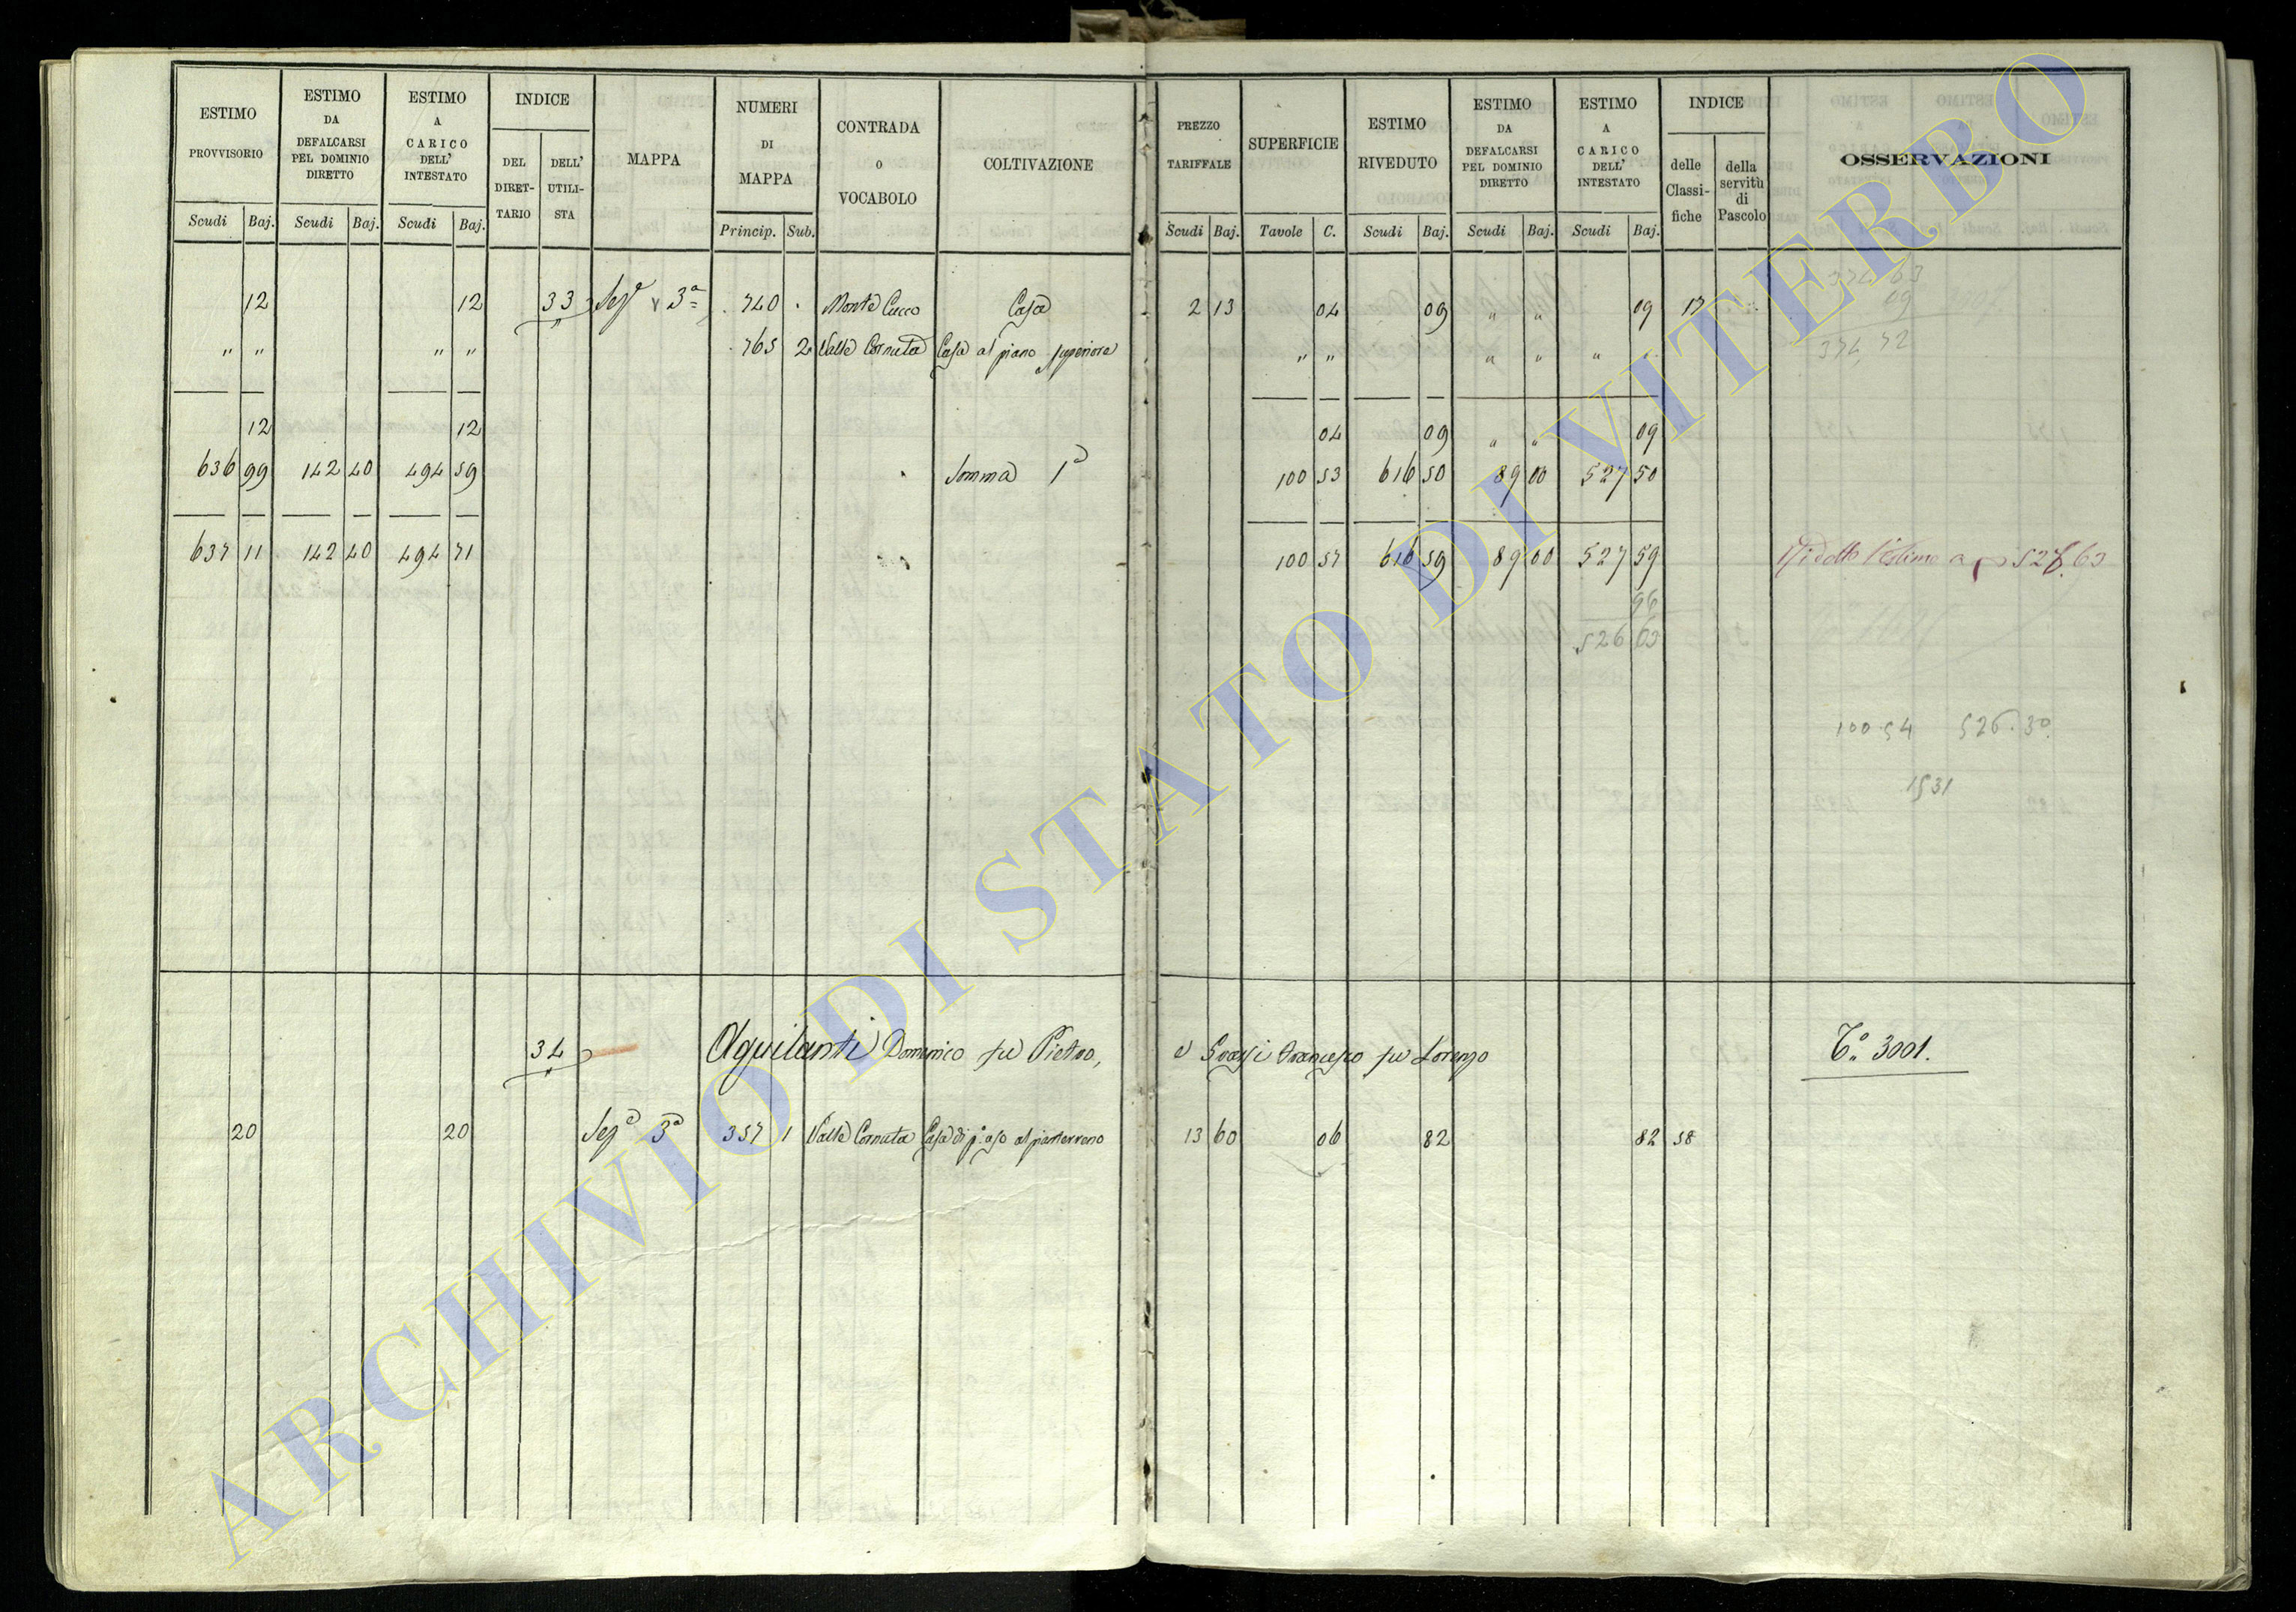 ESTIMO PROVVISORIO
ESTIMO DA DEFALCARSI PEL DOMINIO DIRETTO
ESTIMO A CARICO DELL' INTESTATO
INDICE
DEL DIRET- TARIO
DELL' UTILI- STA
MAPPA
NUMERI DI MAPPA
CONTRADA O VOCABOLO
COLTIVAZIONE
PREZZO TARIFFALE
SUPERFICIE
ESTIMO RIVEDUTO
ESTIMO DA DEFALCARSI PEL DOMINIO DIRETTO
ESTIMO A CARICO DELL' INTESTATO
INDICE
delle Classi- fiche
della servitù di Pascolo
OSSERVAZIONI
Scudi Baj. Scudi Baj. Scudi Baj. Princip. Sub. Scudi Baj. Tavole C. Scudi Baj. Scudi Baj. Scudi Baj.
12 12 33 Sez.e 3ª 740 Monte Cucco Casa 2 13 04 09 " " 09 17
" " " " 765 2 Valle Cornuta Casa al piano superiore " " " " " "
374 63
09
374,72
12 12 04 09 " " 09
636 99 142 40 494 59 Somma 1ª 100 53 616 50 89 00 527 50
637 11 142 40 494 71 100 57 616 59 89 00 527 59 Ridotto l'estimo a 526.63
96
526 63
100.54 526.30
1531
34 Aquilanti Domenico fu Pietro, e Grassi Francesco fu Lorenzo T.o 3001.
20 20 Sez.e 3ª 357 1 Valle Cornuta Casa di p.o uso al pianterreno 13 60 06 82 82 58
ARCHIVIO DI STATO DI VITERBO